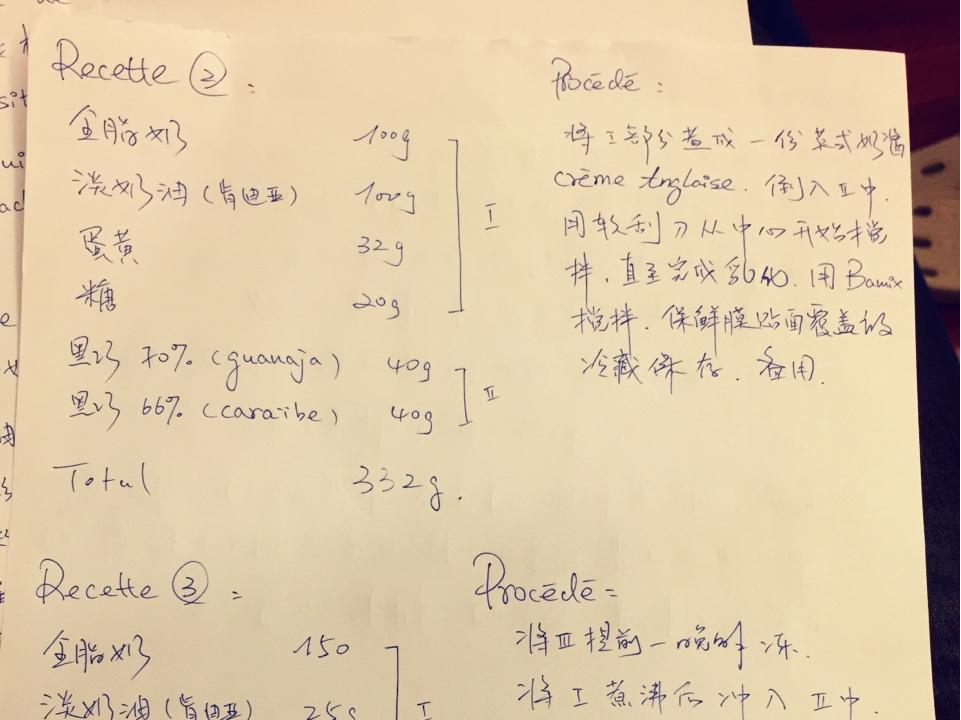 Recette ② :
全脂奶 100g
淡奶油（肯迪亚） 100g
蛋黄 32g
糖 20g
I
黑巧 70% (guanaja) 40g
黑巧 66% (caraïbe) 40g
II
Total 332g.
Procédé :
将I部分煮成一份英式奶酱
crème Anglaise. 倒入II中.
用软刮刀从中心开始搅
拌，直至完成乳化. 用Bamix
搅拌. 保鲜膜贴面覆盖后
冷藏保存. 备用.
Recette ③ :
全脂奶 150
淡奶油（肯迪亚） 25g
I
Procédé =
将III提前一晚解冻.
将I煮沸后冲入II中.